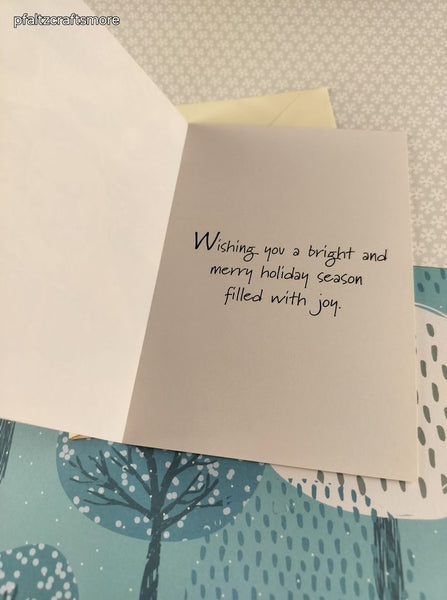 pfaltzcraftsmore
Wishing you a bright and
merry holiday season
filled with joy.